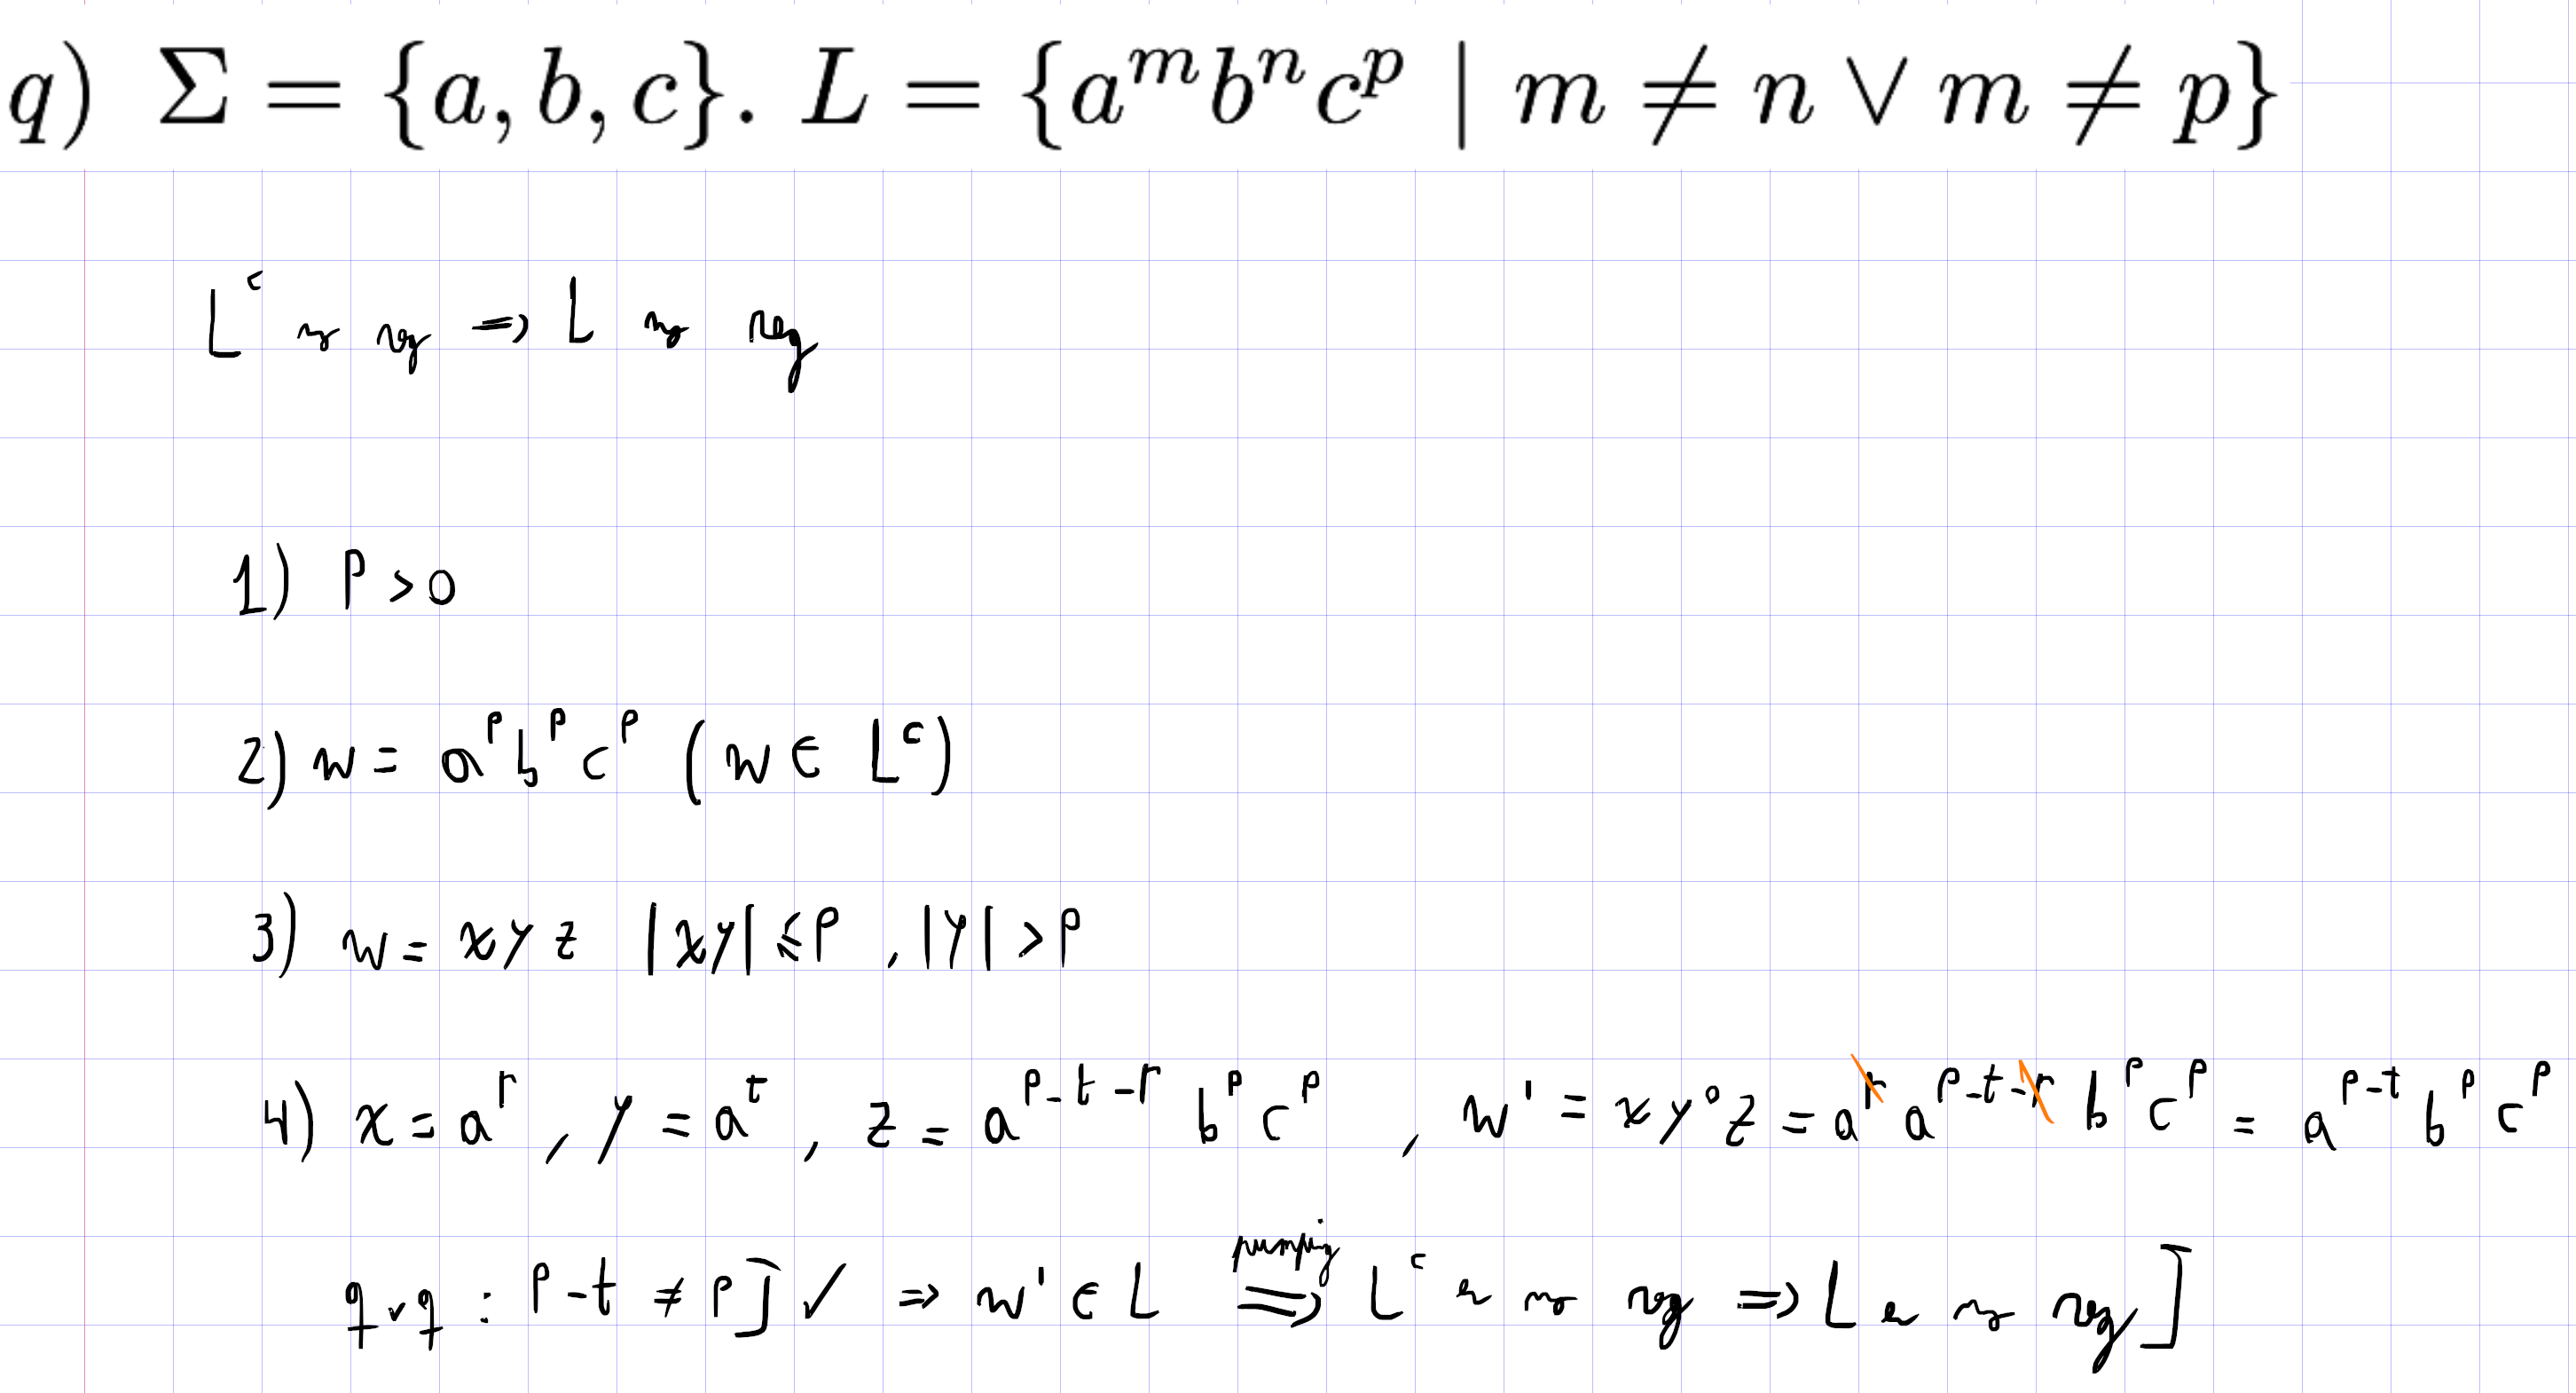 q) Σ = {a, b, c}. L = {aᵐbⁿcᵖ | m ≠ n ∨ m ≠ p}
Lᶜ no reg ⇒ L no reg
1) p > 0
2) w = aᵖ bᵖ cᵖ (w ∈ Lᶜ)
3) w = x y z |xy| ≤ p , |y| > p
4) x = aʳ , y = aᵗ , z = aᵖ⁻ᵗ⁻ʳ bᵖ cᵖ , w' = x y⁰ z = aʳ aᵖ⁻ᵗ⁻ʳ bᵖ cᵖ = aᵖ⁻ᵗ bᵖ cᵖ
qvq : p-t ≠ p] ✓ ⇒ w' ∈ L ⇒ (pumping) Lᶜ es no reg ⇒ L es no reg ]